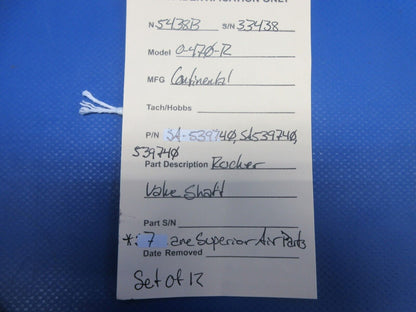 N 5438B S/N 33438
Model O-470-R
MFG Continental
Tach/Hobbs
P/N SA-539740, SA539740,
539740
Part Description Rocker
Valve Shaft
Part S/N
*: 7 are Superior Air Parts
Date Removed
Set of 12